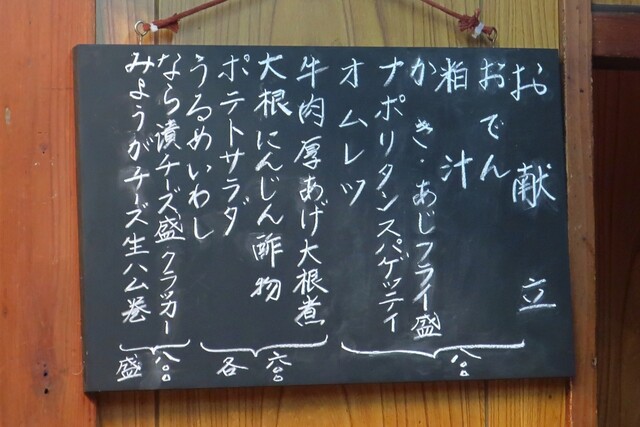 お献立
おでん
粕汁
かき・あじフライ盛
ナポリタンスパゲッティ
オムレツ
八〇〇
牛肉厚あげ大根煮
大根にんじん酢物
ポテトサラダ
うるめいわし
各六〇〇
なら漬チーズ盛クラッカー
みょうがチーズ生ハム巻
盛八〇〇